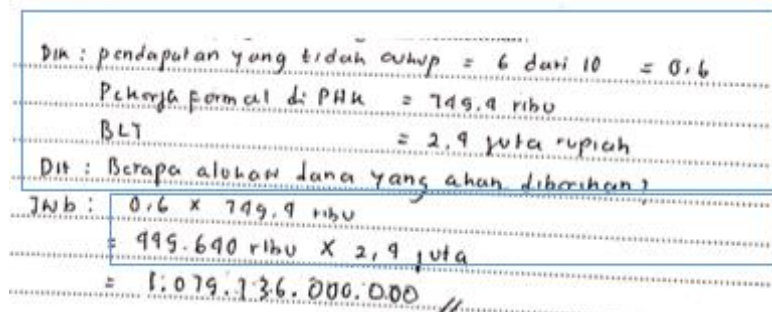 Dik : pendapatan yang tidak cukup = 6 dari 10 = 0,6
Pekerja formal di PHK = 749.4 ribu
BLT = 2,4 juta rupiah
Dit : Berapa alokasi dana yang akan diberikan?
Jwb : 0,6 x 749,4 ribu
= 449.640 ribu x 2,4 juta
= 1.079.136.000.000 //